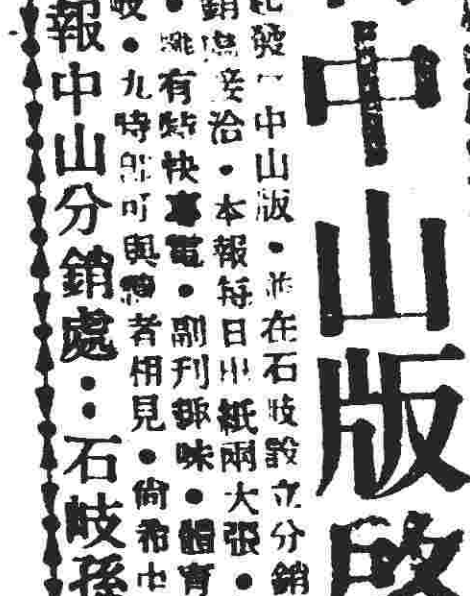 中山版啓
發中山版●並在石岐設立分銷
銷處接洽●本報每日出紙兩大張●
●有特快專電●副刊趣味●體育
●九時即可與讀者相見●尚希中
報中山分銷處：石岐孫